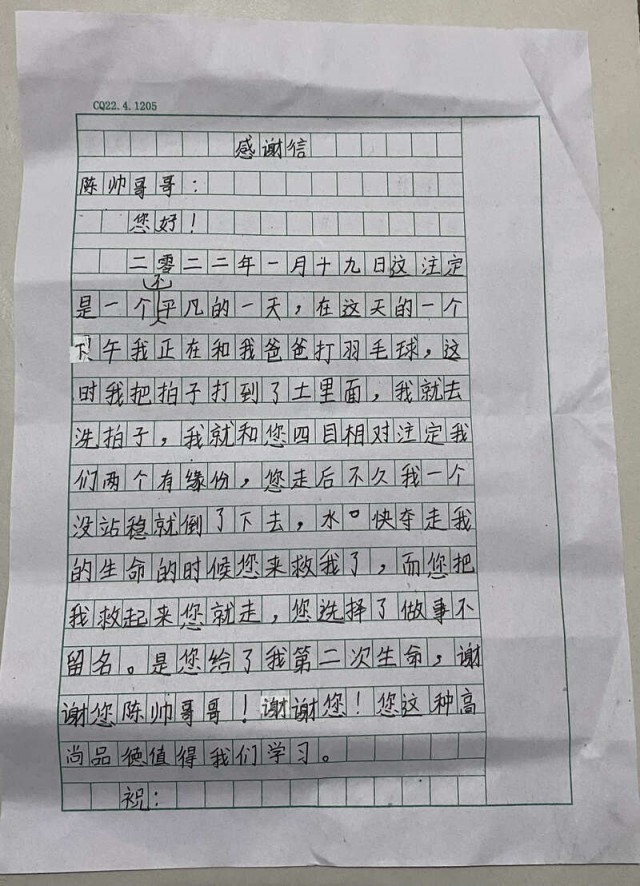 CQ22.4.1205
感谢信
陈帅哥哥：
您好！
二零二二年一月十九日这注定
是一个不平凡的一天，在这天的一个
下午我正在和我爸爸打羽毛球，这
时我把拍子打到了土里面，我就去
洗拍子，我就和您四目相对注定我
们两个有缘份，您走后不久我一个
没站稳就倒了下去，水快夺走我
的生命的时候您来救我了，而您把
我救起来您就走，您选择了做事不
留名。是您给了我第二次生命，谢
谢您陈帅哥哥！谢谢您！您这种高
尚品德值得我们学习。
祝：